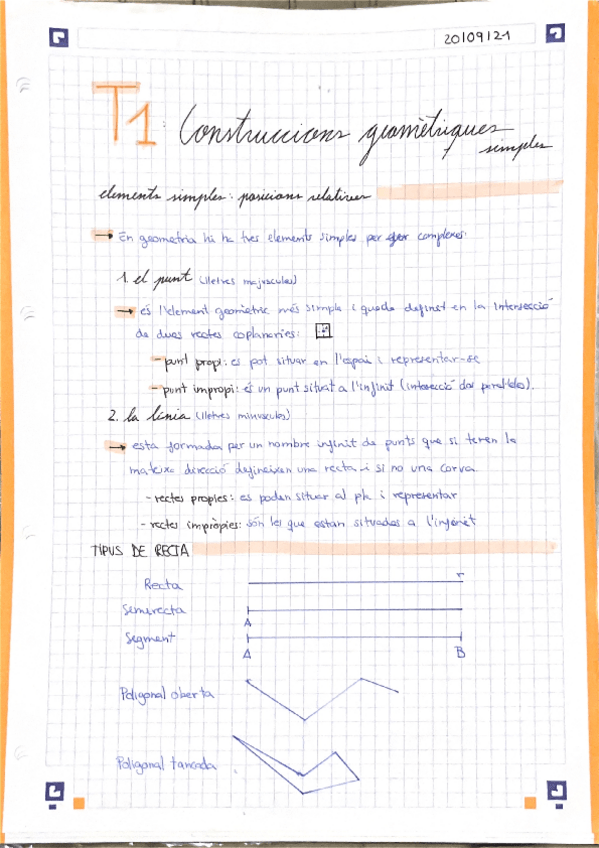 20/09/21
T1: Construccions geomètriques
simples
elements simples: posicions relatives
→ En geometria hi ha tres elements simples per complexes:
1. el punt (lletres majúscules)
→ és l'element geomètric més simple i queda definit en la intersecció
de dues rectes coplanaries:
- punt propi: es pot situar en l'espai i representar-se
- punt impropi: és un punt situat a l'infinit (intersecció dos paral·leles).
2. la línia (lletres minuscules)
→ esta formada per un nombre infinit de punts que si tenen la
mateixa direcció defineixen una recta i si no una corva
- rectes propies: es poden situar al pla i representar
- rectes impròpies: són les que estan situades a l'infinit
TIPUS DE RECTA
Recta r
Semirecta
A
Segment
A B
Poligonal oberta
Poligonal tancada